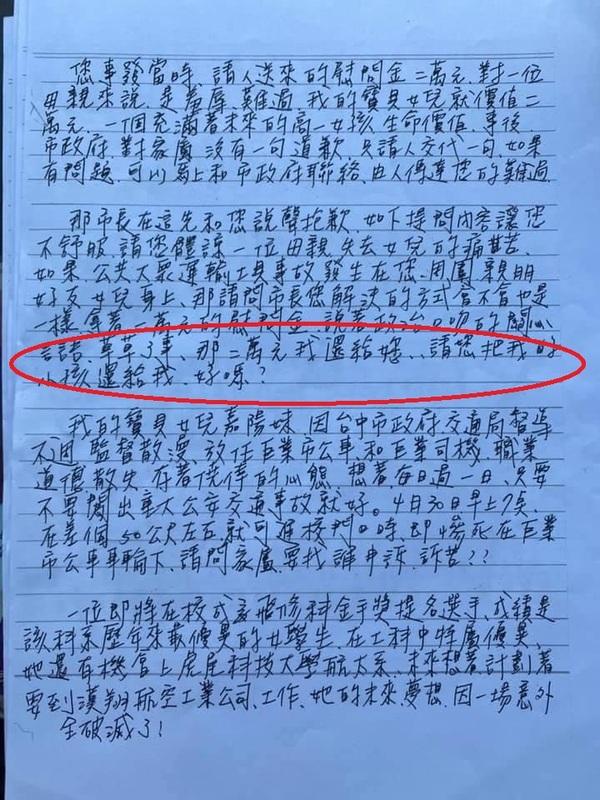 您事發當時、請人送來的慰問金二萬元、對一位
母親來說、是羞辱、難過、我的寶貝女兒就價值二
萬元、一個充滿著未來的高一女孩生命價值、事後
市政府、對家屬沒有一句道歉、只請人交代一句、如果
有問題、可以馬上和市政府聯絡、由人傳達您的難過、
那市長在這先和您說聲抱歉、如下提問內容讓您
不舒服、請您體諒一位母親失去女兒的痛苦、
如果、公共大眾運輸工具事故發生在您、周圍親朋
好友女兒身上、那請問市長您解決的方式會不會也是
一樣、拿著二萬元的慰問金、說著政治口吻的關心
言語、草草了事、那二萬元我還給妳、、請您把我的
小孩還給我、好嗎？
我的寶貝女兒嘉陽妹、因台中市政府交通局督導
不週、監督散漫、放任巨業市公車、和巨業司機、職業
道德散失、存著僥倖的心態、想著每日過一日、只要
不要鬧出重大公安交通事故就好。4月30日早上7點、
在差個50公尺左右、就可進校門口時、即慘死在巨業
市公車車輪下、請問家屬要找誰申訴、訴苦？？
一位即將在校式為飛修科金手獎提名選手、成績是
該科系歷年來最優異的女學生、在工科中特屬優異、
她還有機會上虎尾科技大學航太系、未來想著計劃著
要到漢翔航空工業公司、工作、她的未來、夢想、因一場意外
全破滅了！